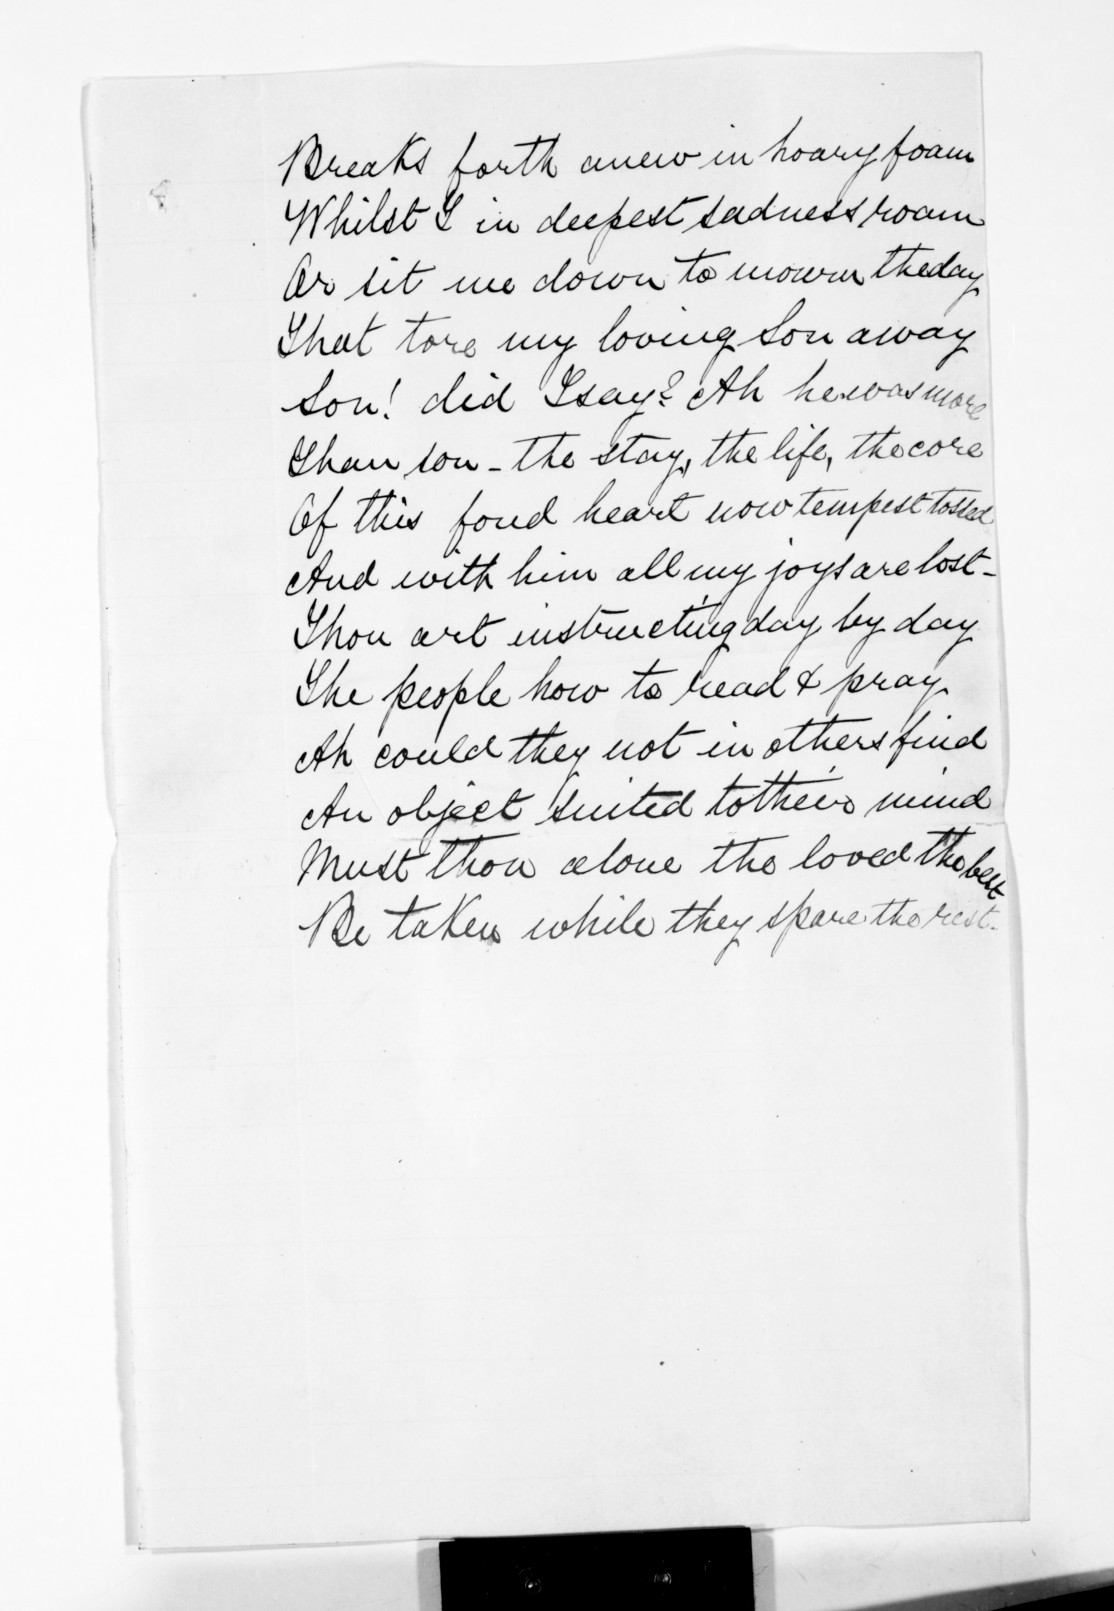 Breaks forth anew in hoary foam
Whilst I in deepest sadness roam
Or sit me down to mourn the day
That tore my loving Son away
Son! did I say? Ah he was more
Than son - the stay, the life, the core
Of this fond heart now tempest tossed
And with him all my joys are lost -
Thou art instructing day by day
The people how to read & pray
Ah could they not in others find
An object suited to their mind
Must thou alone the loved the best
Be taken while they spare the rest.